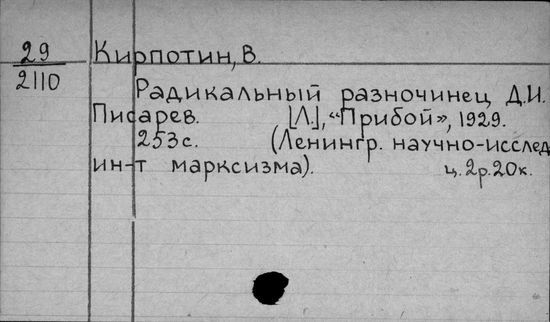 29
2110
Кирпотин, В.
Радикальный разночинец Д.И.
Писарев. [Л.], "Прибой", 1929.
253 с. (Ленингр. научно-исслед
ин-т марксизма). ц. 2р. 20к.